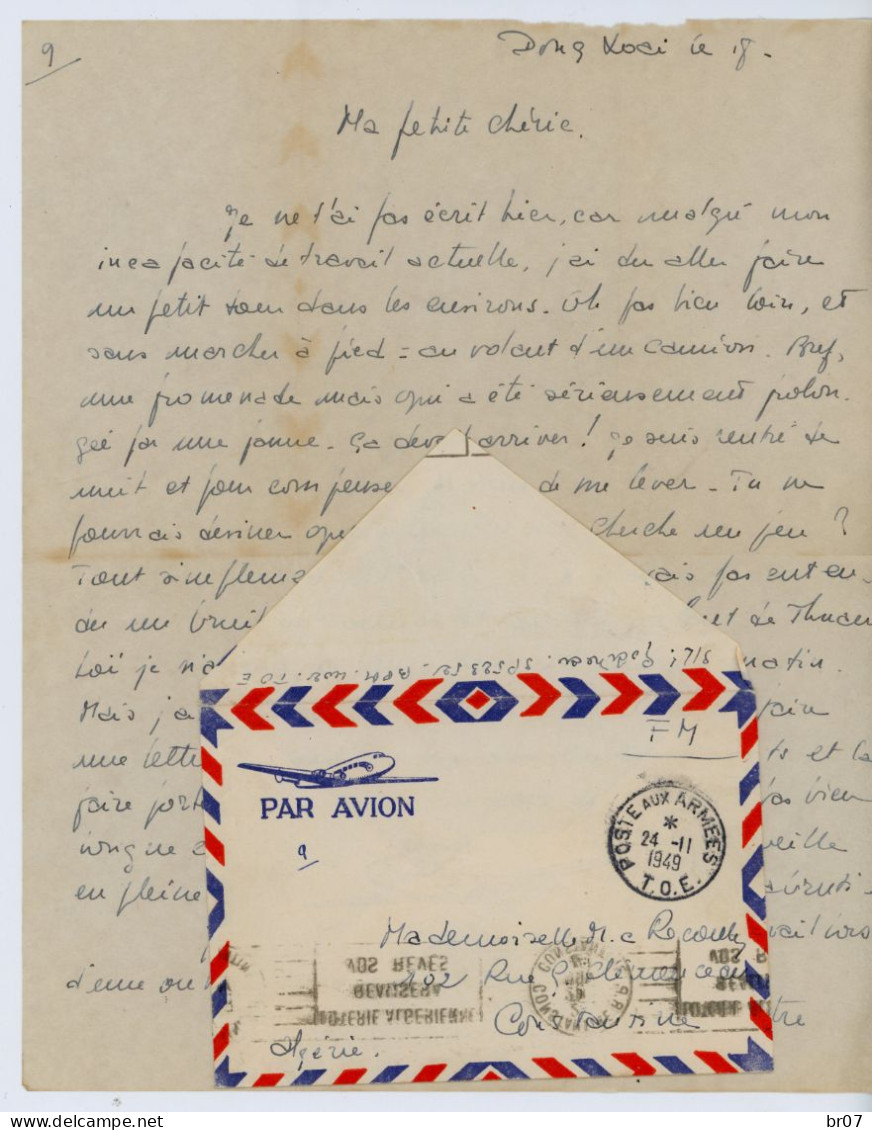 9
Dong Xoai le 18 -
Ma petite chérie.
Je ne t'ai pas écrit hier, car malgré mon
incapacité de travail actuelle, j'ai du aller faire
un petit tour dans les environs. Oh pas bien loin, et
sans marcher à pied = au volant d'un camion. Bref,
une promenade mais qui a été sérieusement prolon-
gée par une panne. Ça devait arriver ! je suis rentré de
nuit et pour compense de me lever - Tu ne
pourrais deviner cherche un peu ?
Tout simpleme ais pas enten-
du un bruit et de Thuan
Loï je n'a matin.
Mais j'a faire
une lettr ts et la
faire port pas bien
longue veille
en pleine
d'une ou
SP 52352 BPM 402 T O E
FM
PAR AVION
9
POSTE AUX ARMEES
*
24 -11
1949
T.O.E.
Mademoiselle M.
102 Rue Clemenceau
Constantine
Algérie.
LOTERIE ALGERIENNE
REALISERA
VOS REVES
CONSTANTINE R.P.
br07